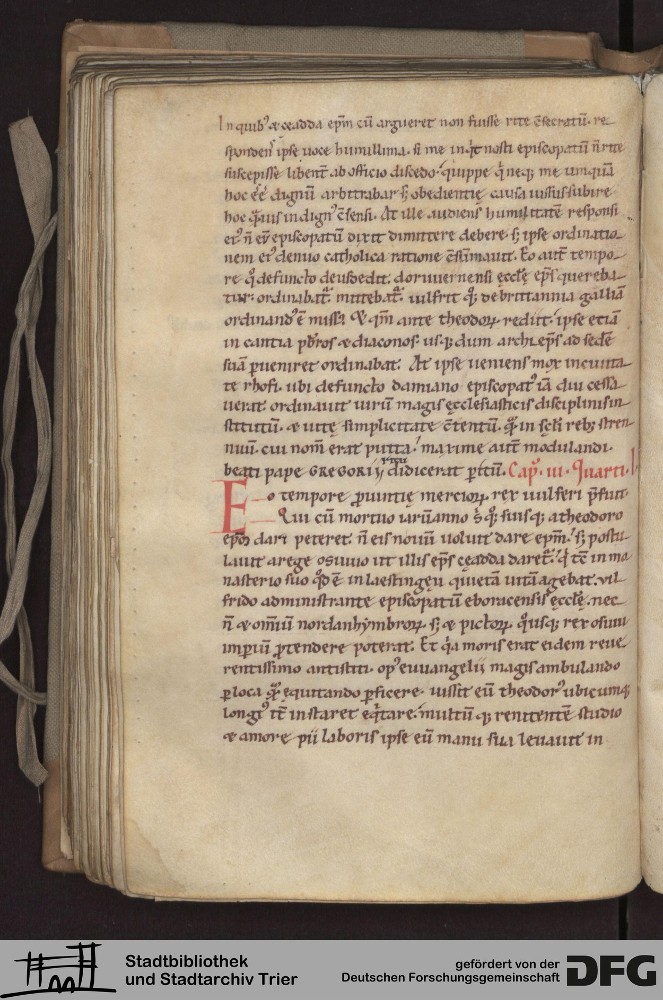 In quib' & ceadda ep̄m cū argueret non fuisse rite c̄secratū. re
sponden' ipse uoce humillima. si me inq̇t nosti episcopatū n̄ rite
suscepisse libent̄ ab officio discedo. quippe q̇ neq; me umquā
hoc ēē dignū arbitrabar s; obedientię causa iussus subire
hoc q̄uis indign' c̄sensi. At ille audiens humilitatē responsi
ei'. n̄ eū episcopatū dixit dimittere debere. s; ipse ordinatio
nem ei' denuo catholica ratione c̄sūmauit. Eo aut̄ tempo
re q̇ defuncto deusdedit. doruuernensi ęcclę ep̄s quereba
tur. ordinabat᷑. mittebat᷑. uilfrit q; de brittannia galliā
ordinand' ē miss'. & qm̄ ante theodorꝝ rediit. ipse etiā
in cantia pb̄ros & diaconos. usq; dum archiep̄s ad sedē
suā ꝑueniret ordinabat. At ipse ueniens mox in ciuita
te rhofi. ubi defuncto damiano episcopat' iā diu cessa
uerat. ordinauit uirū magis ęcclesiasticis disciplinis in
stitutū. & uitę simplicitate c̄tentū. q̄ in sc̄li reb; stren
nuū. cui nom̄ erat putta. maxime aut̄ modulandi.
beati pape GREGORII didicerat ꝑitū. Cap̄. iii. Quarti. l
Eo tempore ꝓuintię merciorꝝ rex uuilferi p̄fuit.
Qui cū mortuo iarūanno s̄ q; suisq; a theodoro
ep̄m dari peteret. n̄ eis nouū uoluit dare ep̄m. s; postu
lauit a rege osuuio ut illis ep̄s cęadda daret᷑. q̇ tc̄ in mo
nasterio suo qd̄ ē in laestingęu quietā uitā agebat. uil
frido administrante episcopatū eboracensis ęcclę. nec
n̄ & omniū nordanhymbrorꝝ s; & pictorꝝ q̊usq; rex osuiu
imperiū ꝓtendere poterat. Et q̇a moris erat eidem reue
rentissimo antistiti. op' euuangelii magis ambulando
ꝑ loca q̄ equitando ꝑficere. iussit eū theodor' ubicumq;
long' it̄ instaret eq̇tare. multū q; renitentē studio
& amore pii laboris ipse eū manu sua leuauit in
Stadtbibliothek
und Stadtarchiv Trier
gefördert von der
Deutschen Forschungsgemeinschaft
DFG